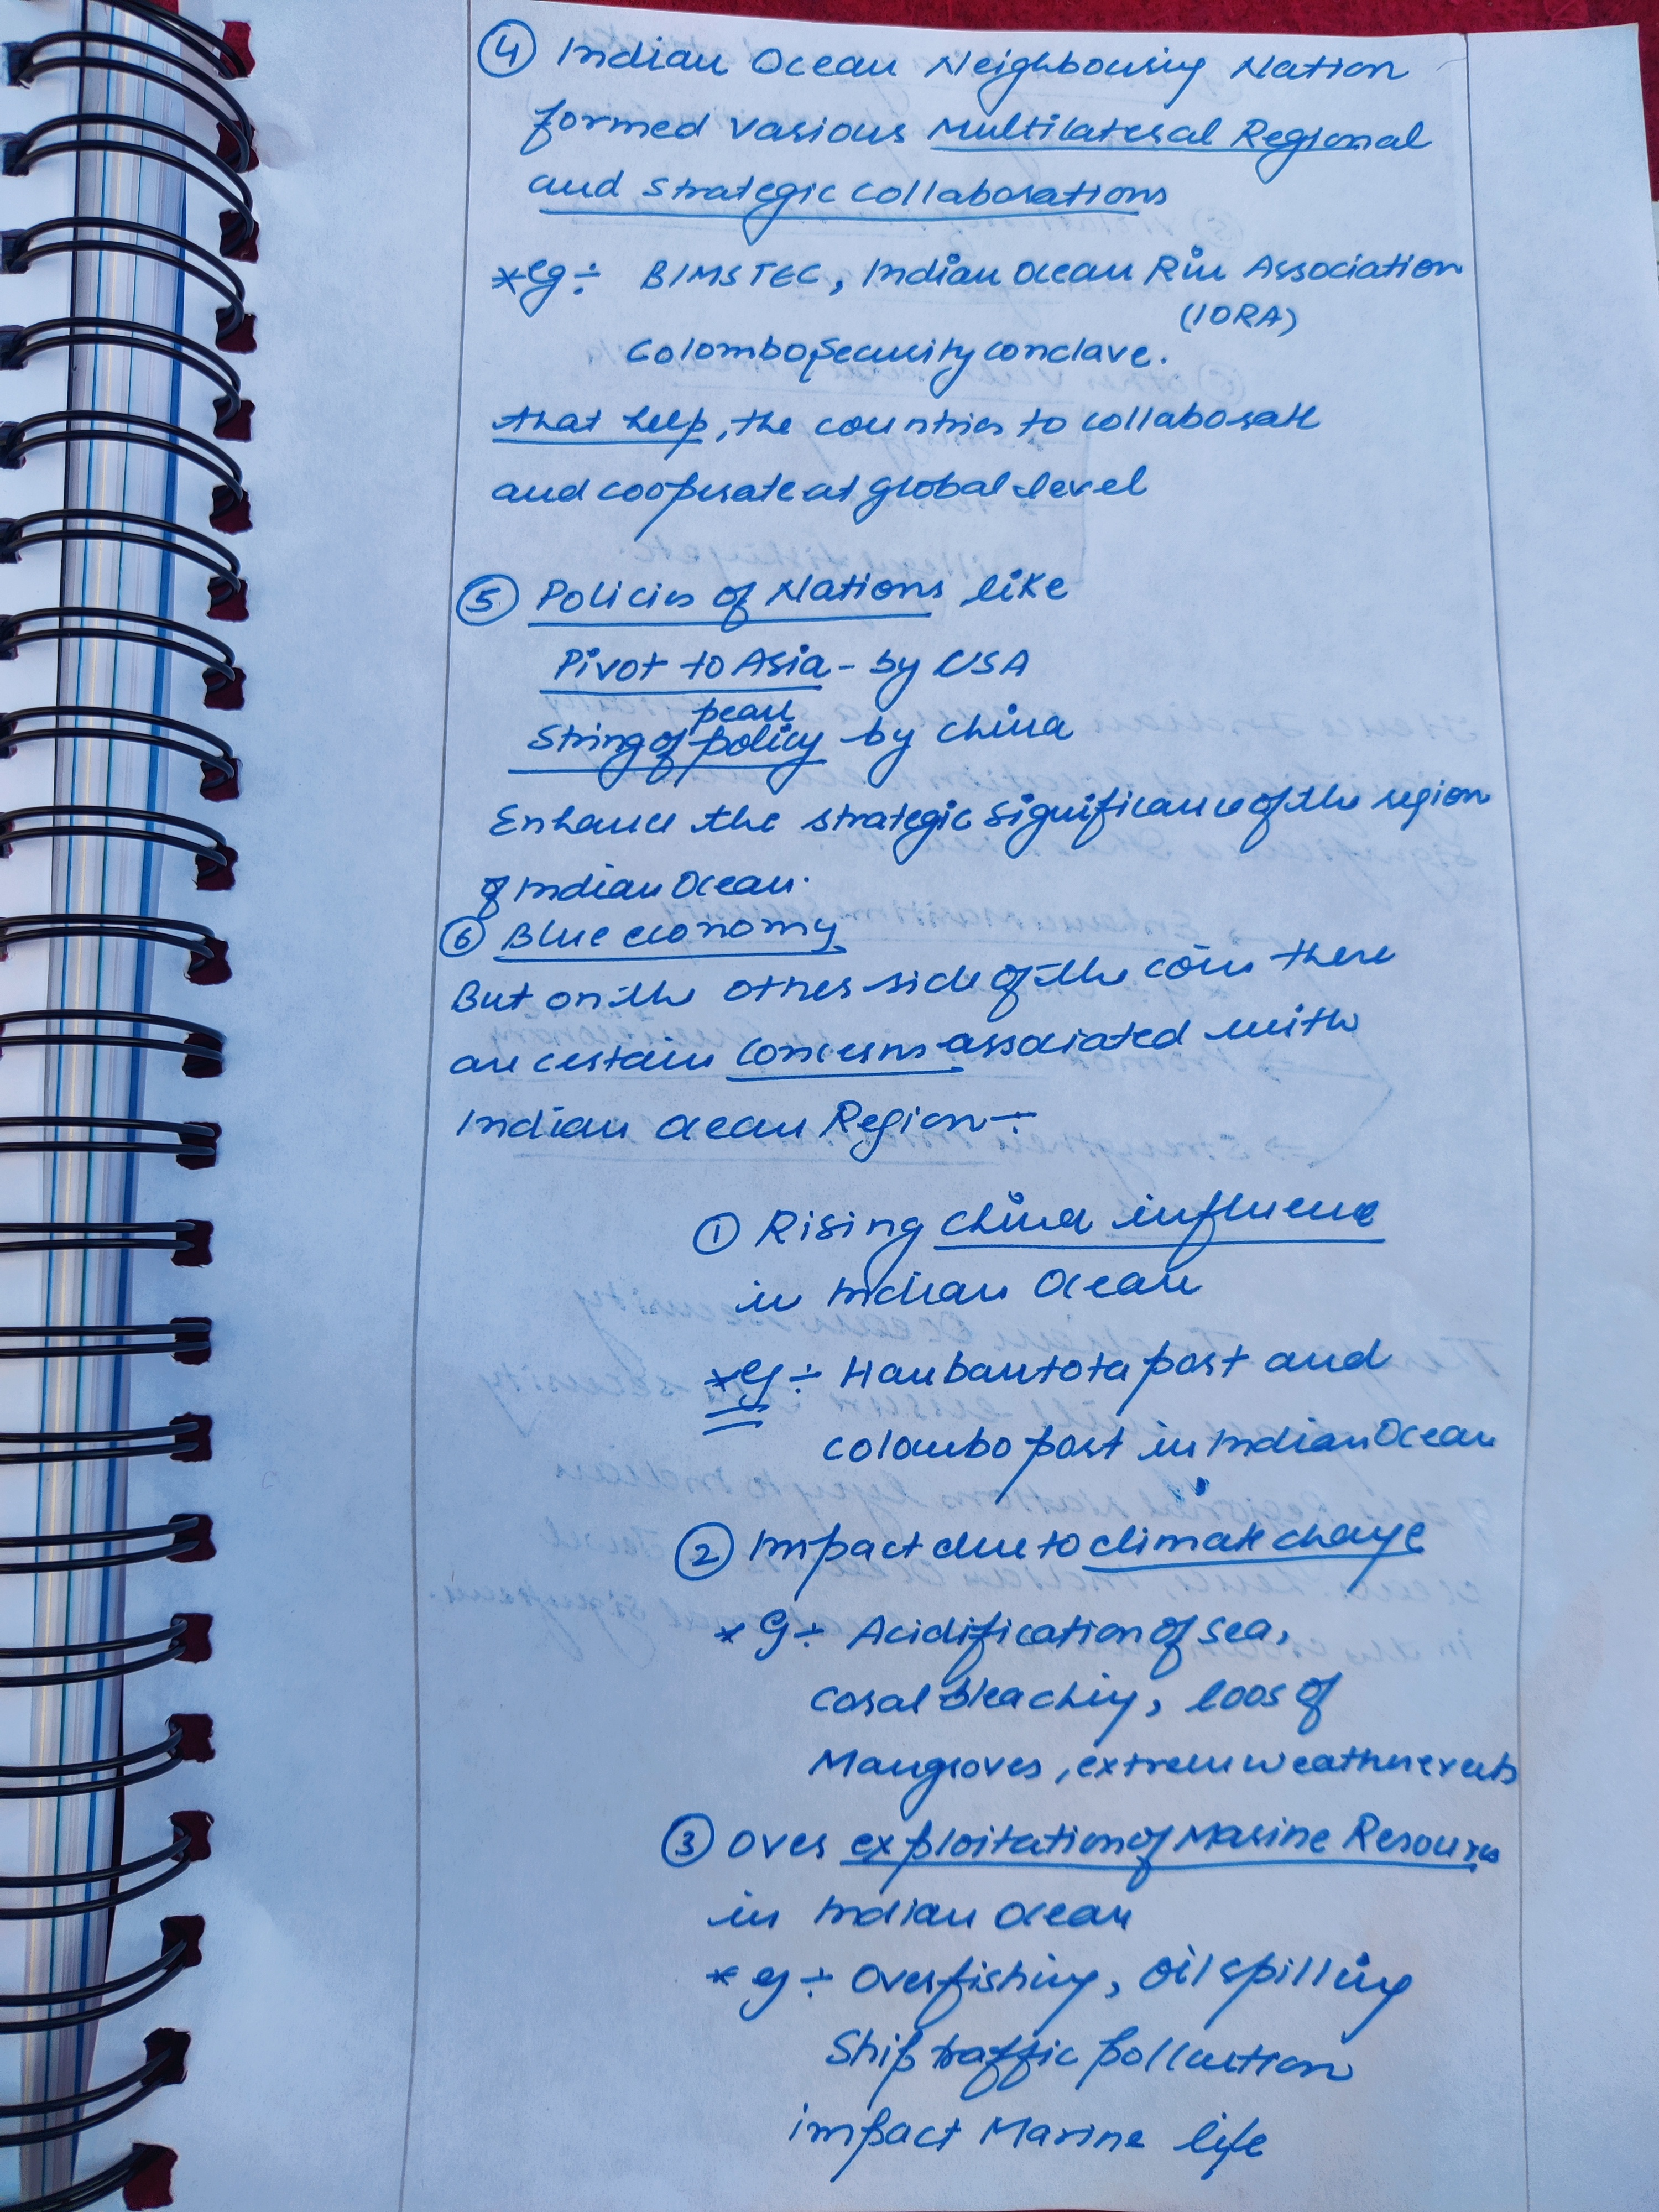 ④ Indian Ocean Neighbouring Nation
formed various Multilateral Regional
and strategic collaborations
*eg÷ BIMSTEC, Indian Ocean Rim Association
(IORA)
Colombo Security conclave.
that help, the countries to collaborate
and cooperate at global level
⑤ Policies of Nations like
Pivot to Asia - by USA
pearl
String of policy by China
Enhance the strategic significance of the region
of Indian Ocean.
⑥ Blue economy
But on the other side of the coin there
are certain concerns associated with
Indian Ocean Region÷
① Rising China influence
in Indian Ocean
*eg÷ Hanbantota port and
Colombo port in Indian Ocean
② Impact due to climate change
*eg÷ Acidification of sea,
coral bleaching, loos of
Mangroves, extreme weather events
③ Over exploitation of Marine Resources
in Indian Ocean
*eg÷ Overfishing, Oil spilling
Ship traffic pollution
impact Marine life